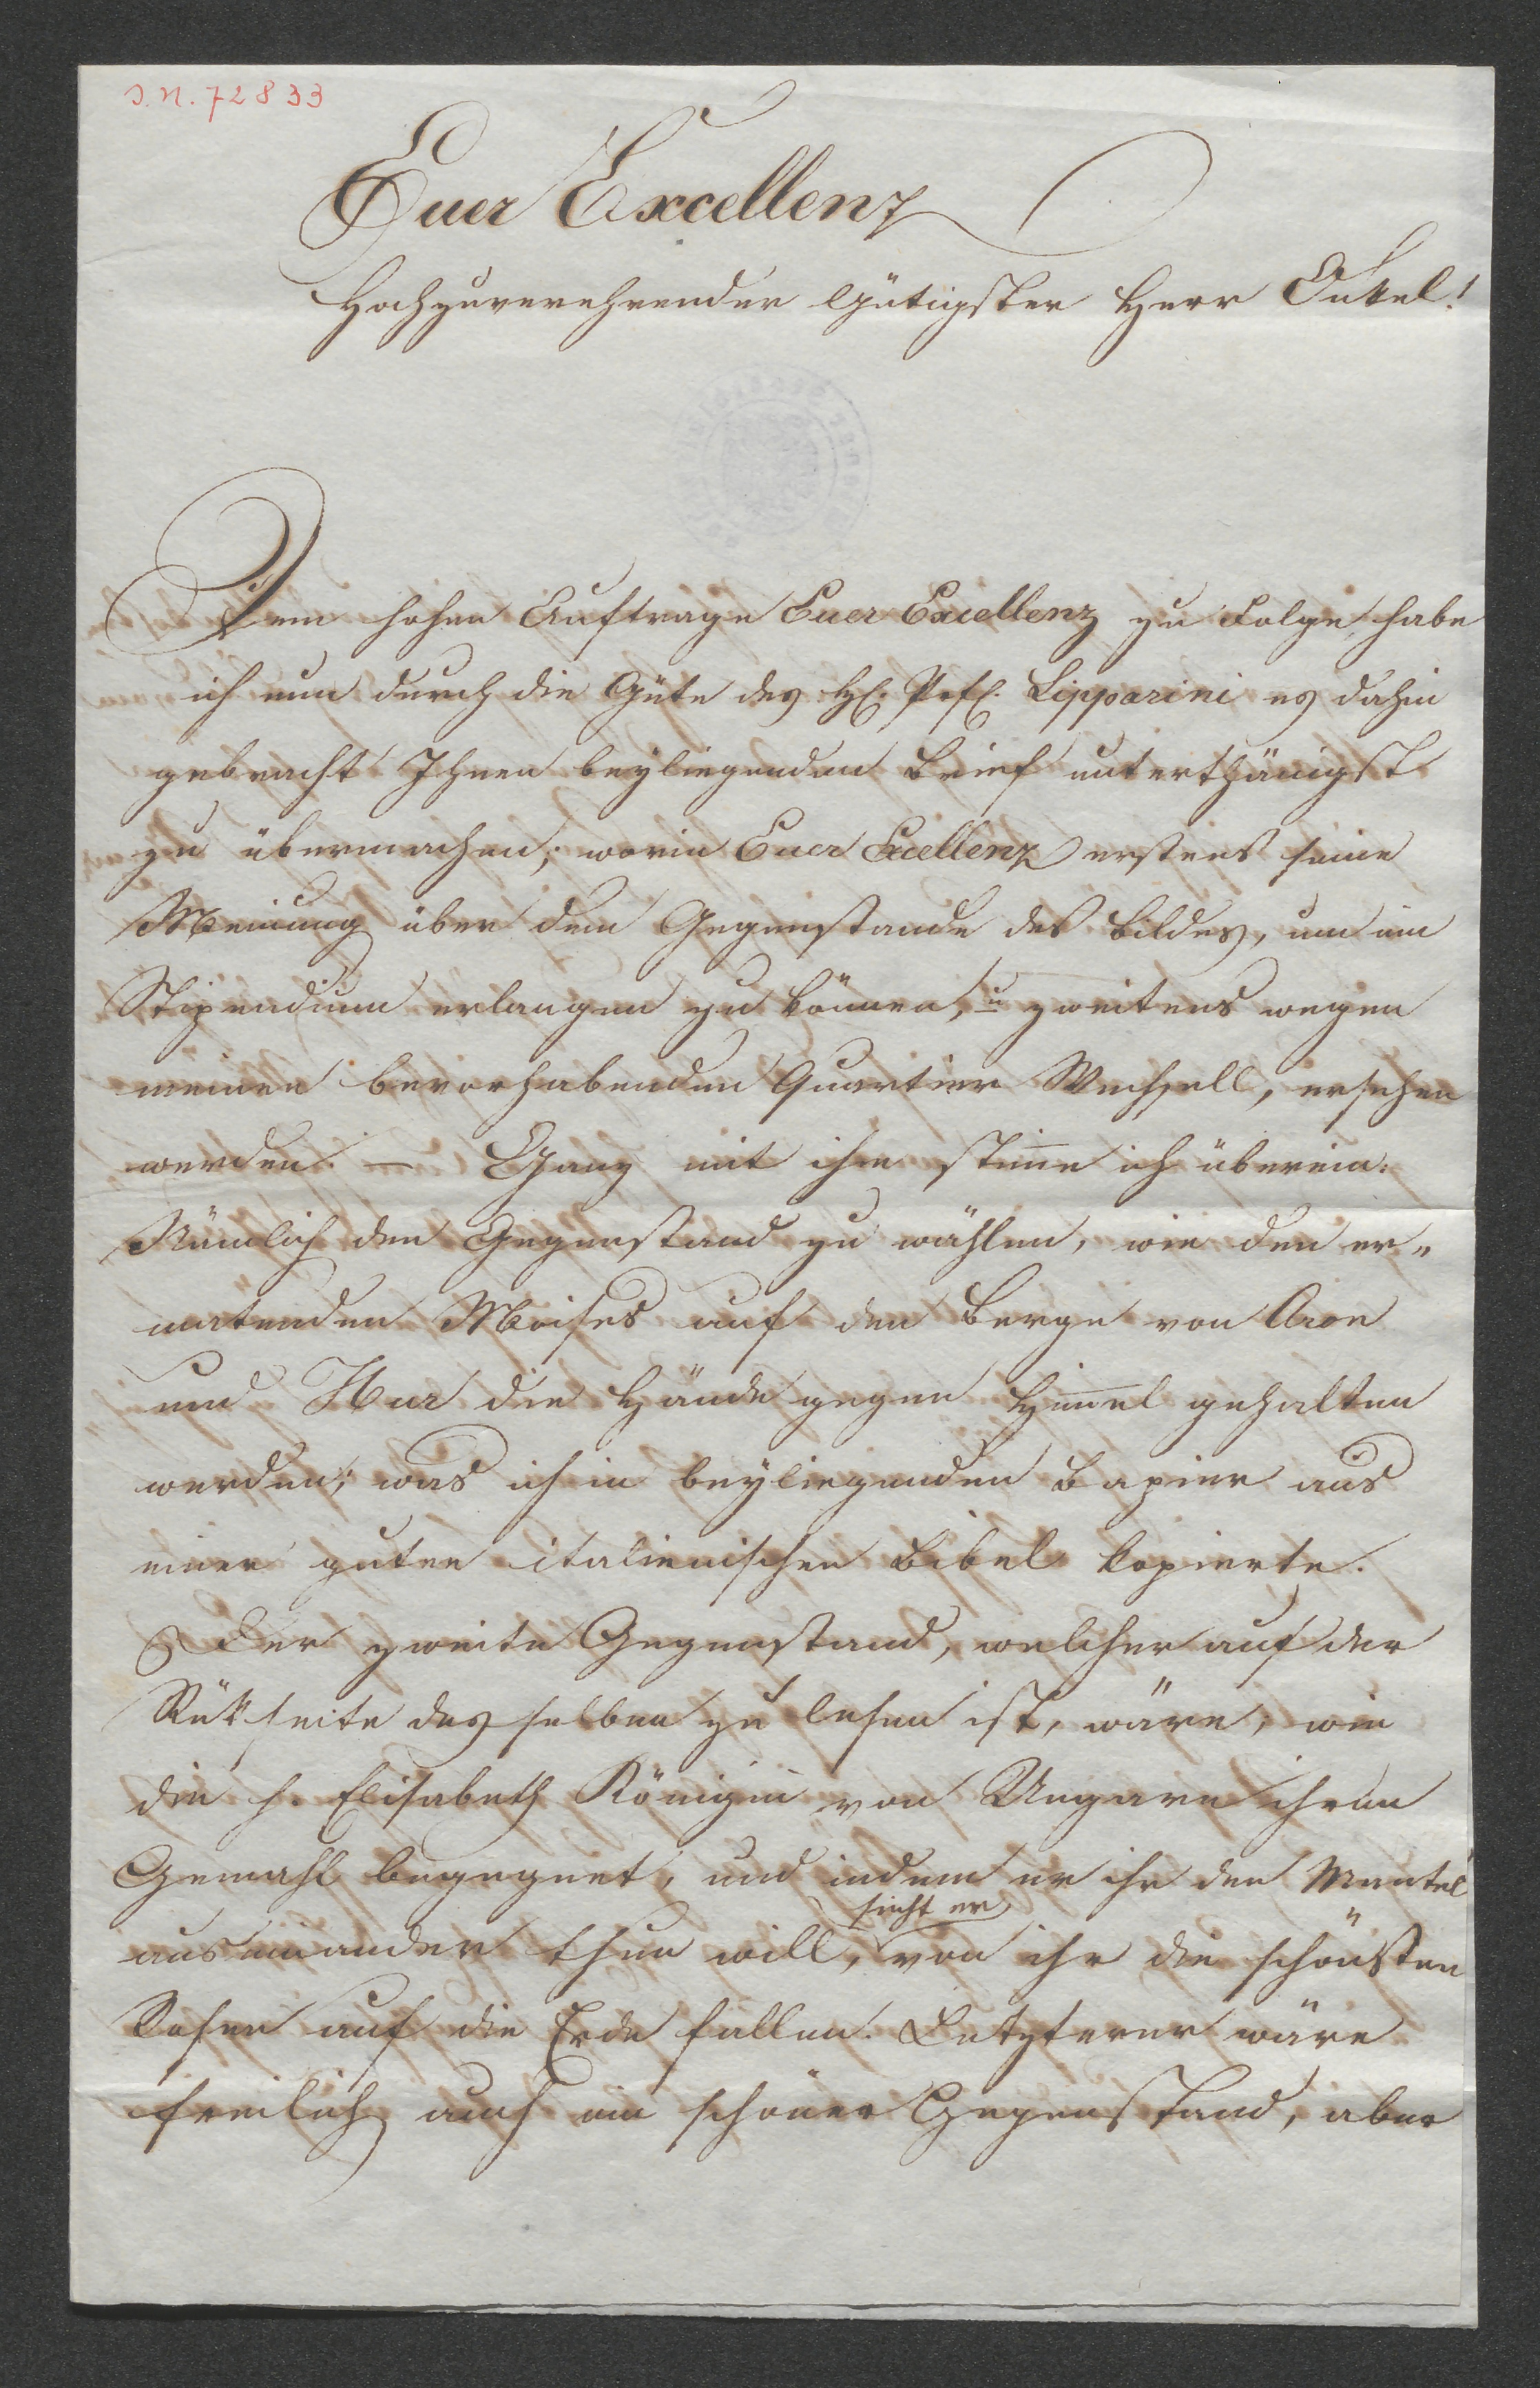 J.N. 72833
Euer Excellenz
Hochzuverehrender Gütigster Herr Onkel!
Dem hohen Auftrage Euer Excellenz zu Folge, habe
ich nun durch die Güte des H. Prof. Lipparini es dahin
gebracht Ihnen beyliegenden Brief unterthänigst
zu übermachen; worin Euer Excellenz erstens seine
Meinung über dem Gegenstande des Bildes, um ein
Stipendium erlangen zu können, u zweitens wegen
meinen bevorhabenden Quartier Wechsell, ersehen
werden. – Ganz mit ihm stim̅e ich überein.
Nämlich den Gegenstand zu wählen, wie den er„
matenden Moises auf den Berge von Aron
und Hur die Hände gegen Him̅el gehalten
werden; was ich in beyliegenden Bapier aus
einer guten italienischen Bibel kopierte.
Der zweite Gegenstand, welcher auf der
Rükseite desselben zu lesen ist, wäre, wie
die h. Elisabeth Königin von Ungarn ihren
Gemahl begegnet, und indem er ihr den Mantel
sieht er
auseinander thun will, von ihr die schönsten
Rosen auf die Erde fallen. Letzterer wäre
freilich auch ein schöner Gegenstand, aber